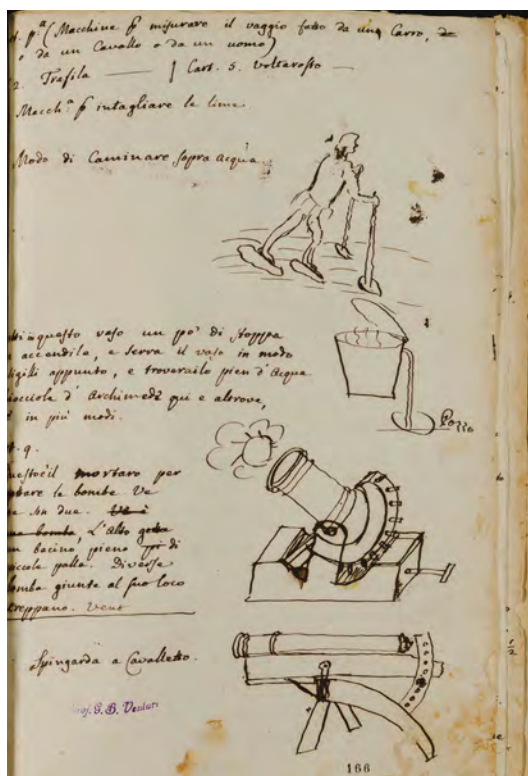 p.ª (Macchine p misurare il viaggio fatto da una Carro, de
o da un Cavallo o da un uomo)
2. Trafila — Cart. 5. Voltarosto —
Macch.ª p intagliare le lime
Modo di Caminare sopra acqua.
questo vaso un po' di stoppa
accendila, e serra il vaso in modo
sigilli appunto, e troverailo pien d'Acqua
Chiocciole d'Archimede qui e altrove,
in più modi.
Pozzo
9.
il mortaro per
le bombe Ve
son due.
bomba, L'Alto getta
bacino pieno di
piccole palle. Diverse
bomba giunte al suo loco
Spingarda a Cavalletto.
Prof. G. B. Venturi
166